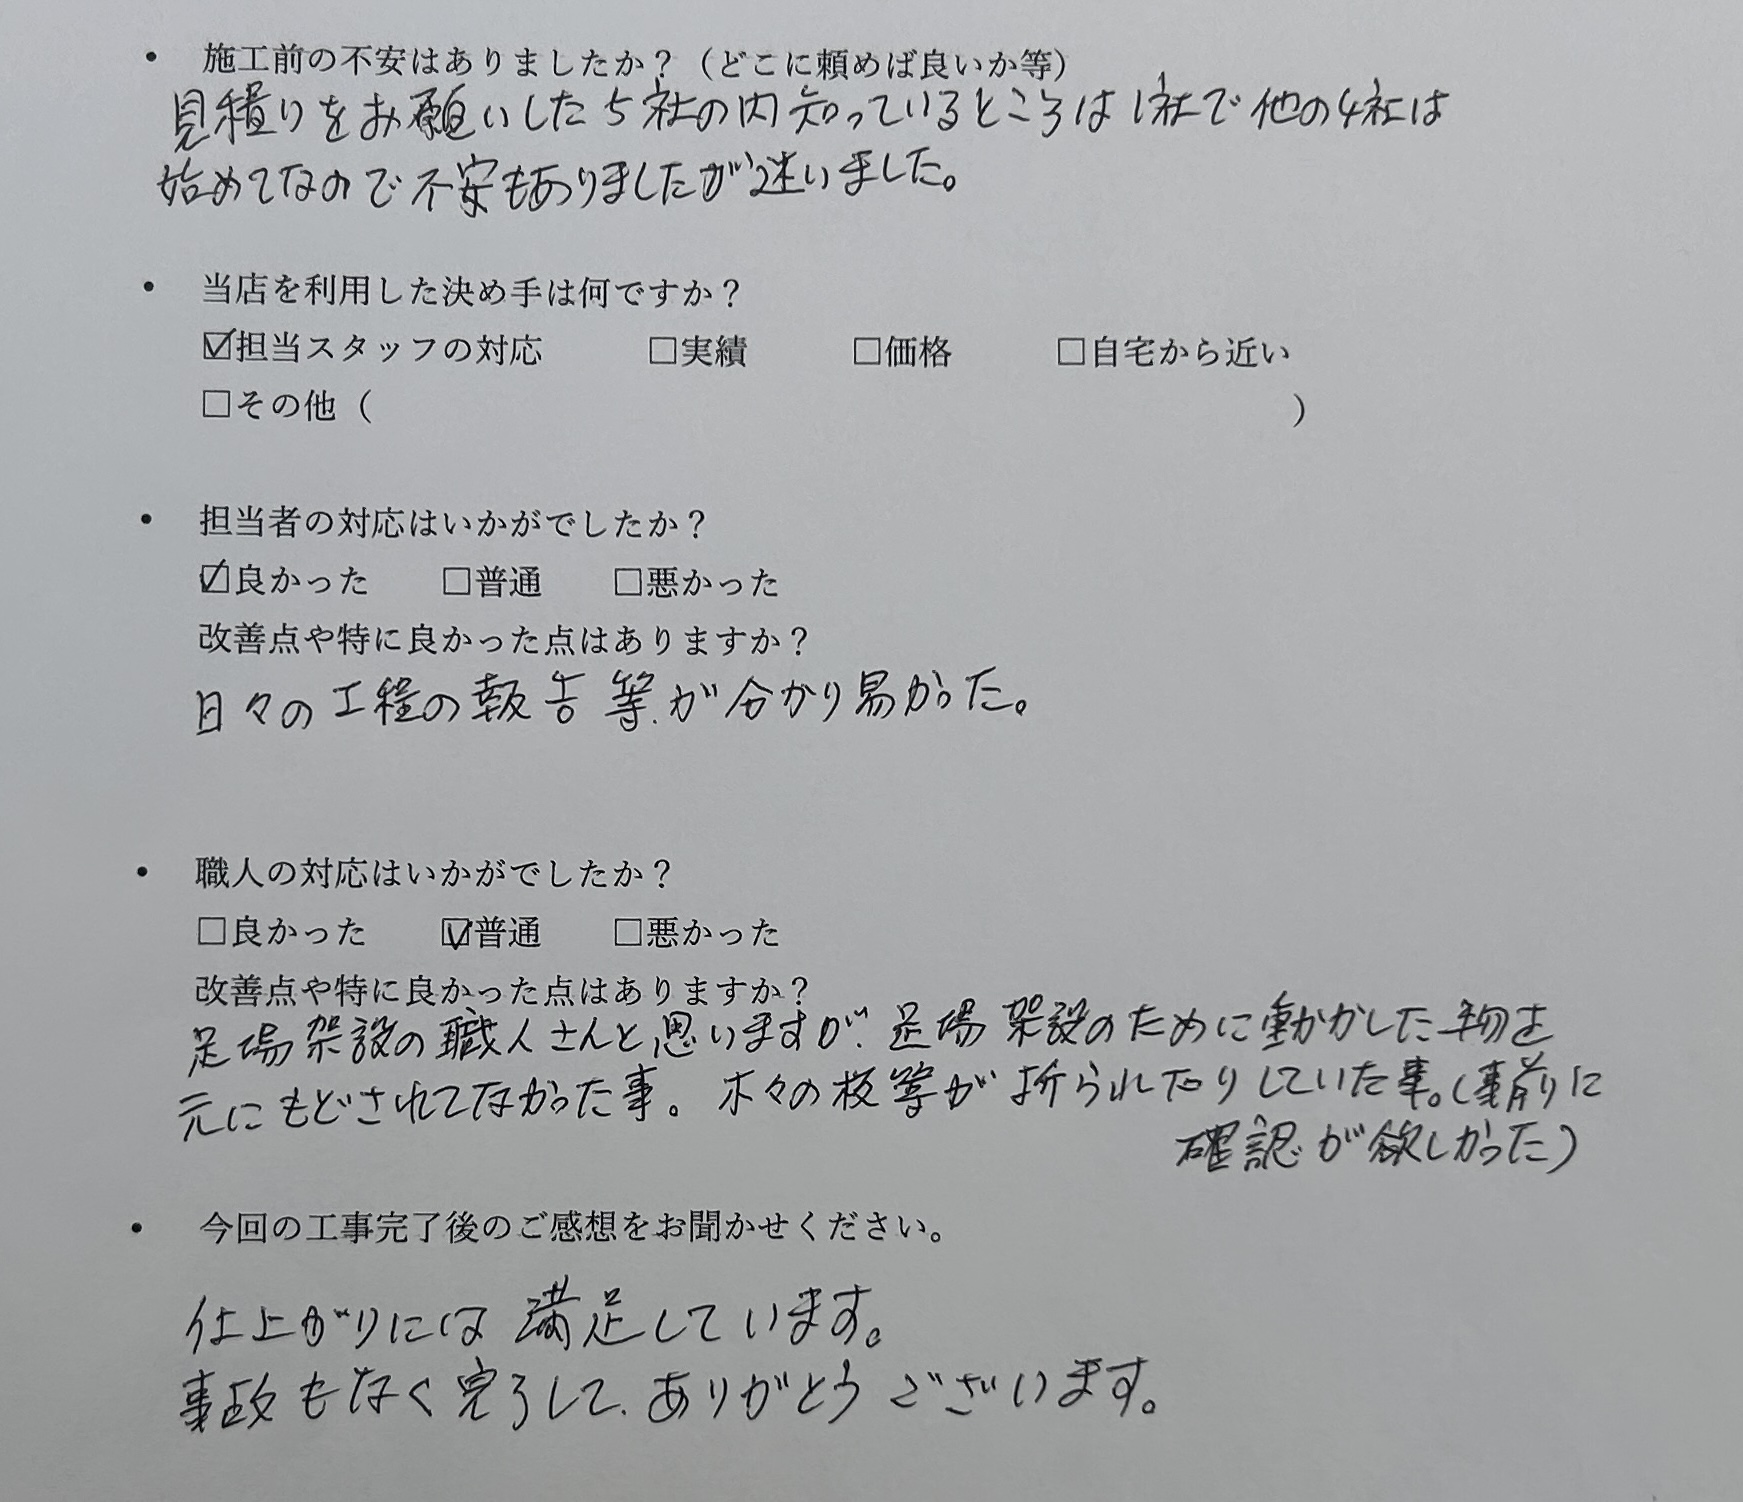 ・ 施工前の不安はありましたか？（どこに頼めば良いか等）
見積りをお願いした5社の内知っているところは1社で他の4社は
始めてなので不安もありましたが迷いました。
・ 当店を利用した決め手は何ですか？
☑担当スタッフの対応 □実績 □価格 □自宅から近い
□その他（ ）
・ 担当者の対応はいかがでしたか？
☑良かった □普通 □悪かった
改善点や特に良かった点はありますか？
日々の工程の報告等が分かり易かった。
・ 職人の対応はいかがでしたか？
□良かった ☑普通 □悪かった
改善点や特に良かった点はありますか？
足場架設の職人さんと思いますが、足場架設のために動かした物を
元にもどされてなかった事。木々の枝等が折られたりしていた事。（事前に
確認が欲しかった）
・ 今回の工事完了後のご感想をお聞かせください。
仕上がりには満足しています。
事故もなく完了して、ありがとうございます。